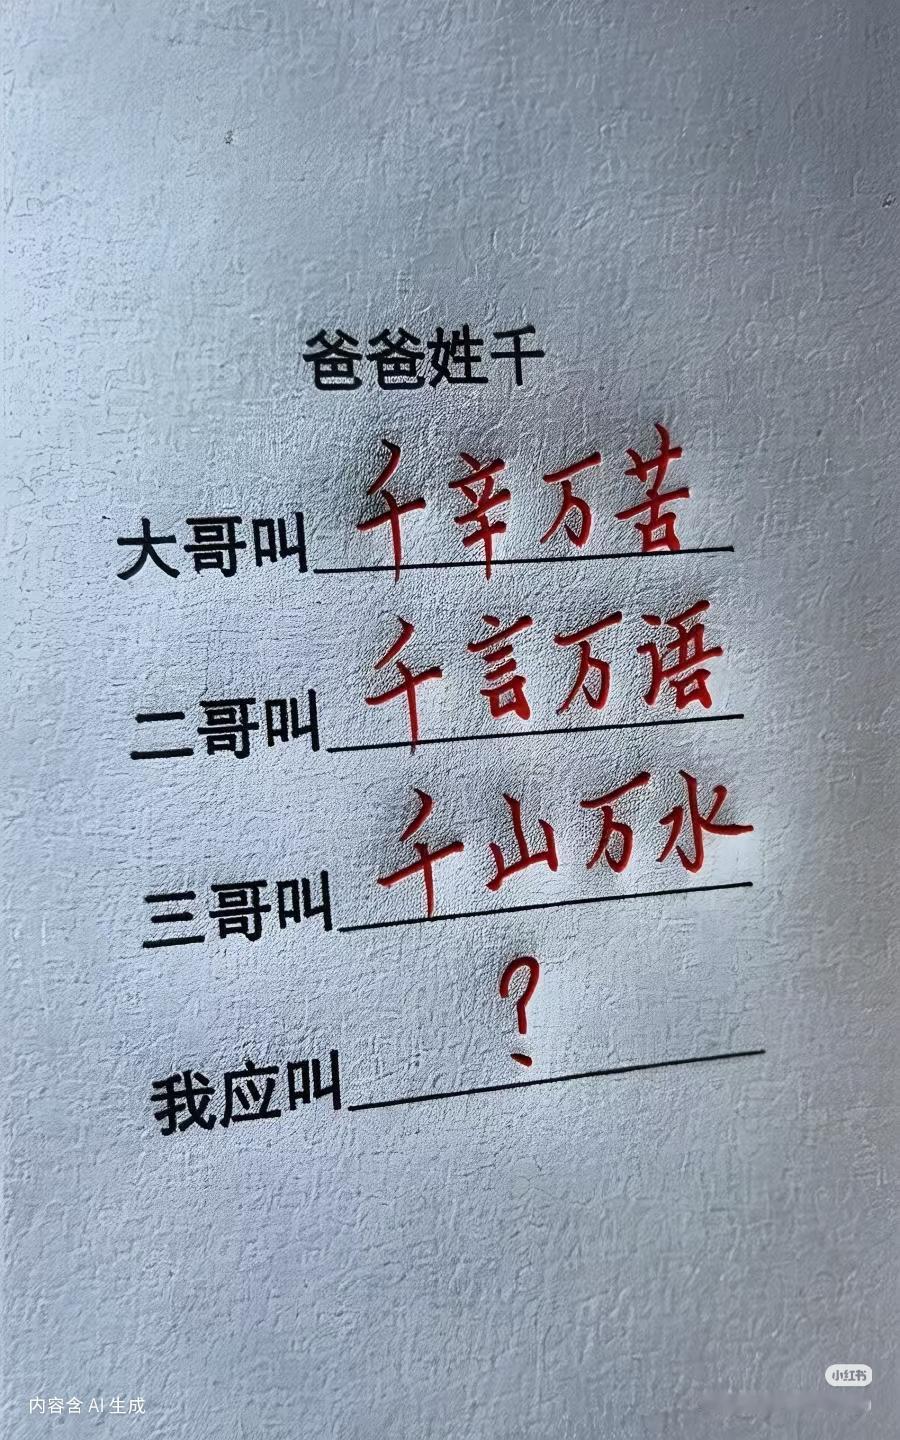 爸爸姓千
大哥叫千辛万苦
二哥叫千言万语
三哥叫千山万水
我应叫?
小红书
内容含 AI 生成